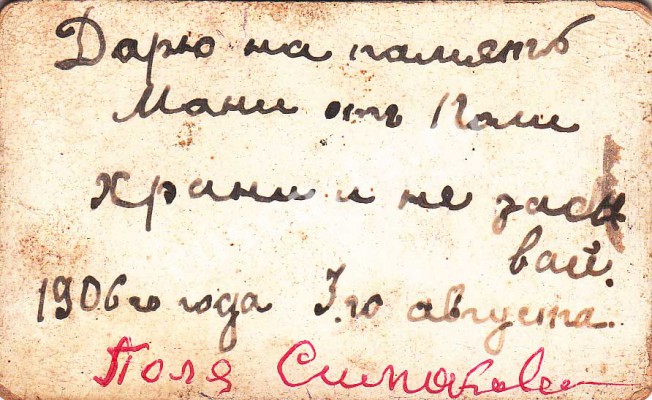 Дарю на память
Мани отъ Поли
храни и не засы
вай.
1906 го года 3го августа
Поля